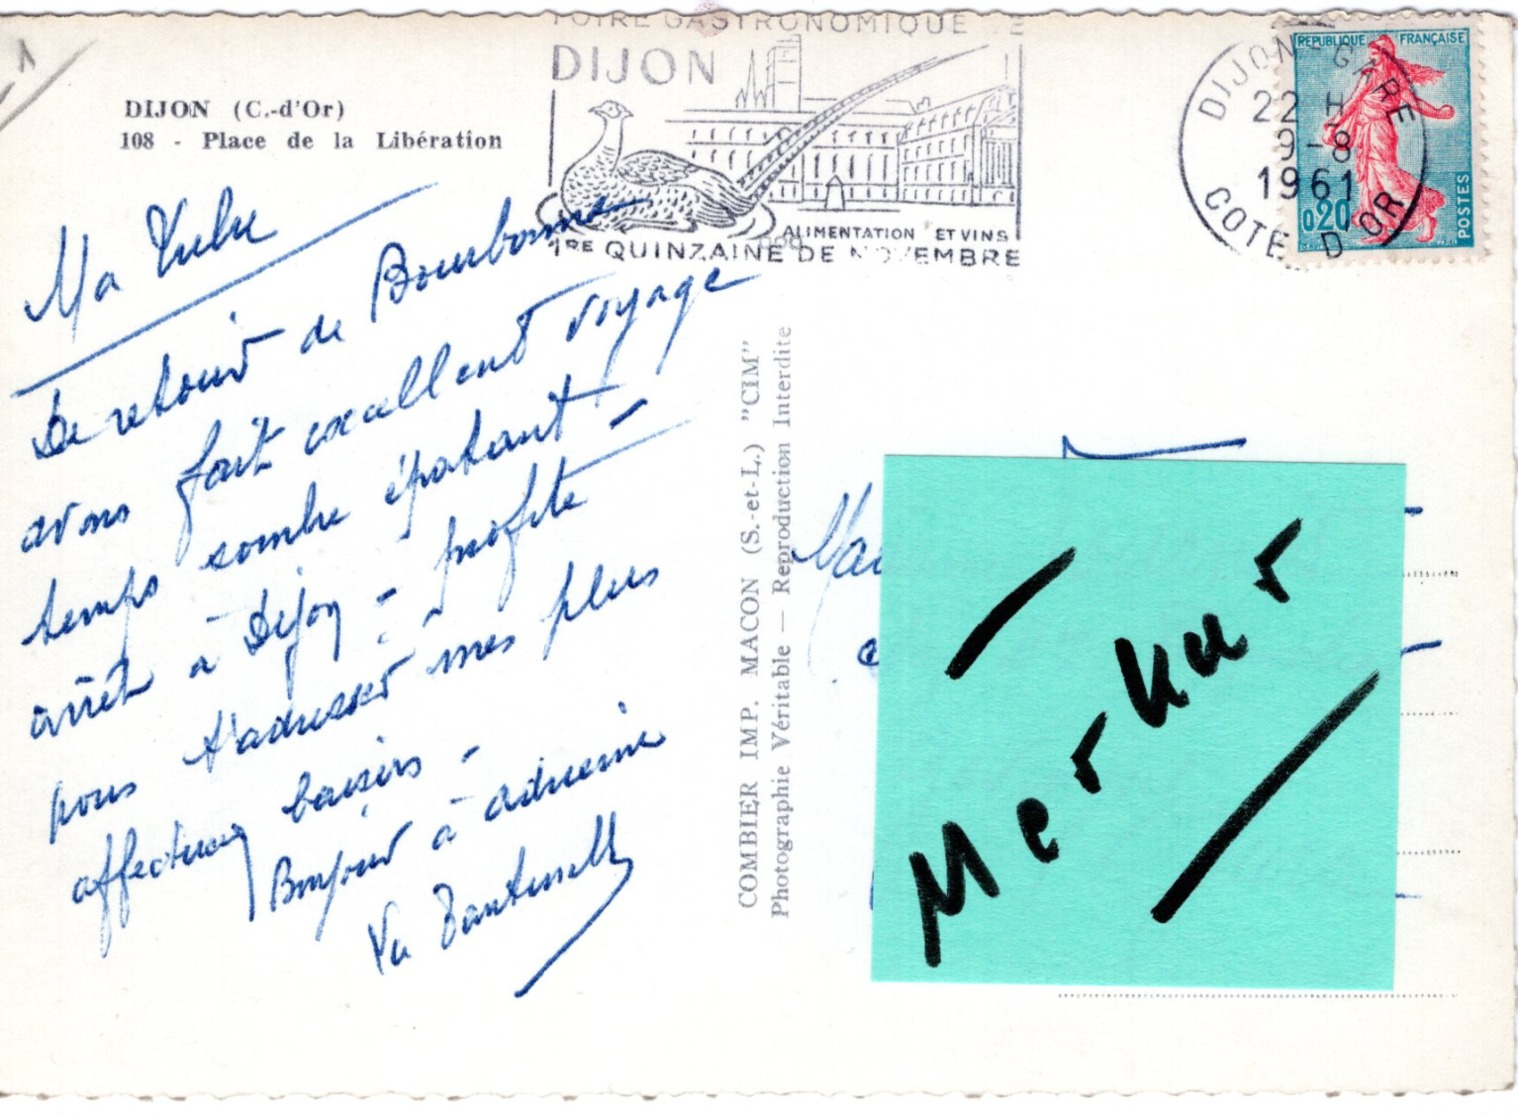 FOIRE GASTRONOMIQUE DE
DIJON
ALIMENTATION ET VINS
1RE QUINZAINE DE NOVEMBRE
DIJON-GARE
22 H
9-8
1961
COTE D'OR
REPUBLIQUE FRANÇAISE
0,20
POSTES
DIJON (C.-d'Or)
108 - Place de la Libération
Ma Lulu
De retour de Bourbonne
avons fait excellent voyage
temps sombre épatant -
arrêt à Dijon - profite
pour t'adresser mes plus
affectueux baisers -
Bonjour à adrienne
COMBIER IMP. MACON (S.-et-L.) "CIM"
Photographie Véritable — Reproduction Interdite
Merkur